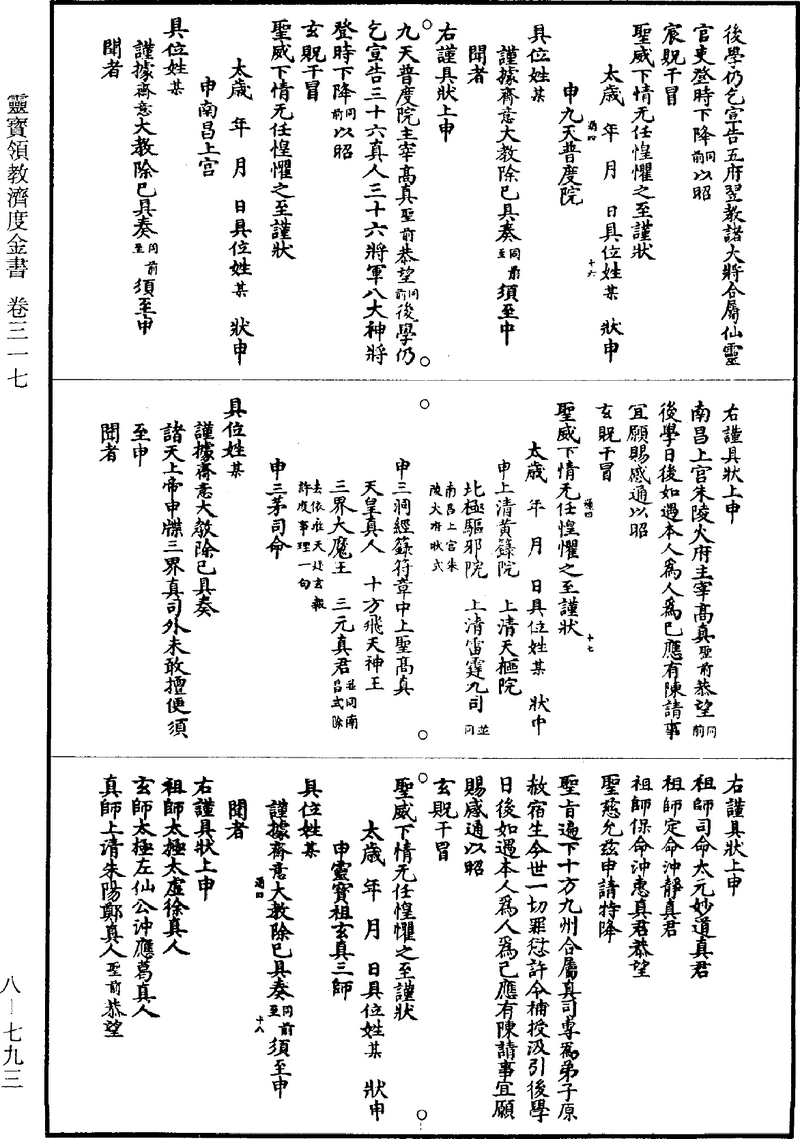 靈寶領教濟度金書　卷三一七
八—七九三
後學仍乞宣告五府翌教諸大將合屬仙靈
官吏登時下降同前以昭
宸貺干冒
聖威下情无任惶懼之至謹狀
太歲　年　月　日具位姓某　狀申
通四　十六
申九天普度院
具位姓某
謹據齋意大教除已具奏同前至須至申
聞者
右謹具狀上申
九天普度院主宰高真聖前恭望同前後學仍
乞宣告三十六真人三十六將軍八大神將
登時下降同前以昭
玄貺干冒
聖威下情无任惶懼之至謹狀
太歲　年　月　日具位姓某　狀申
申南昌上宮
具位姓某
謹據齋意大教除已具奏同前至須至申
聞者
右謹具狀上申
南昌上宮朱陵火府主宰高真聖前恭望同前
後學日後如遇本人為人為己應有陳請事
宜願賜感通以昭
玄貺干冒
聖威下情无任惶懼之至謹狀
通四　十七
太歲　年　月　日具位姓某　狀申
申上清黃籙院　上清天樞院
北極驅邪院　上清雷霆九司並同
南昌上宮朱陵火府狀式
申三洞經籙符章中上聖高真
天皇真人　十方飛天神王
三界大魔王　三元真君並同南昌式除
去依准天廷玄報許度事理一句
申三茅司命
具位姓某
謹據齋意大教除已具奏
諸天上帝申牒三界真司外未敢擅便須
至申
聞者
右謹具狀上申
祖師司命太元妙道真君
祖師定命沖靜真君
祖師保命沖惠真君恭望
聖慈允茲申請特降
聖旨遍下十方九州合屬真司專為弟子原
赦宿生今世一切罪愆許令補授汲引後學
日後如遇本人為人為己應有陳請事宜願
賜感通以昭
玄貺干冒
聖威下情无任惶懼之至謹狀
太歲　年　月　日具位姓某　狀申
申靈寶祖玄真三師
具位姓某
謹據齋意大教除已具奏同前至須至申
通四　十八
聞者
右謹具狀上申
祖師太極太虛徐真人
玄師太極左仙公沖應葛真人
真師上清朱陽鄭真人聖前恭望